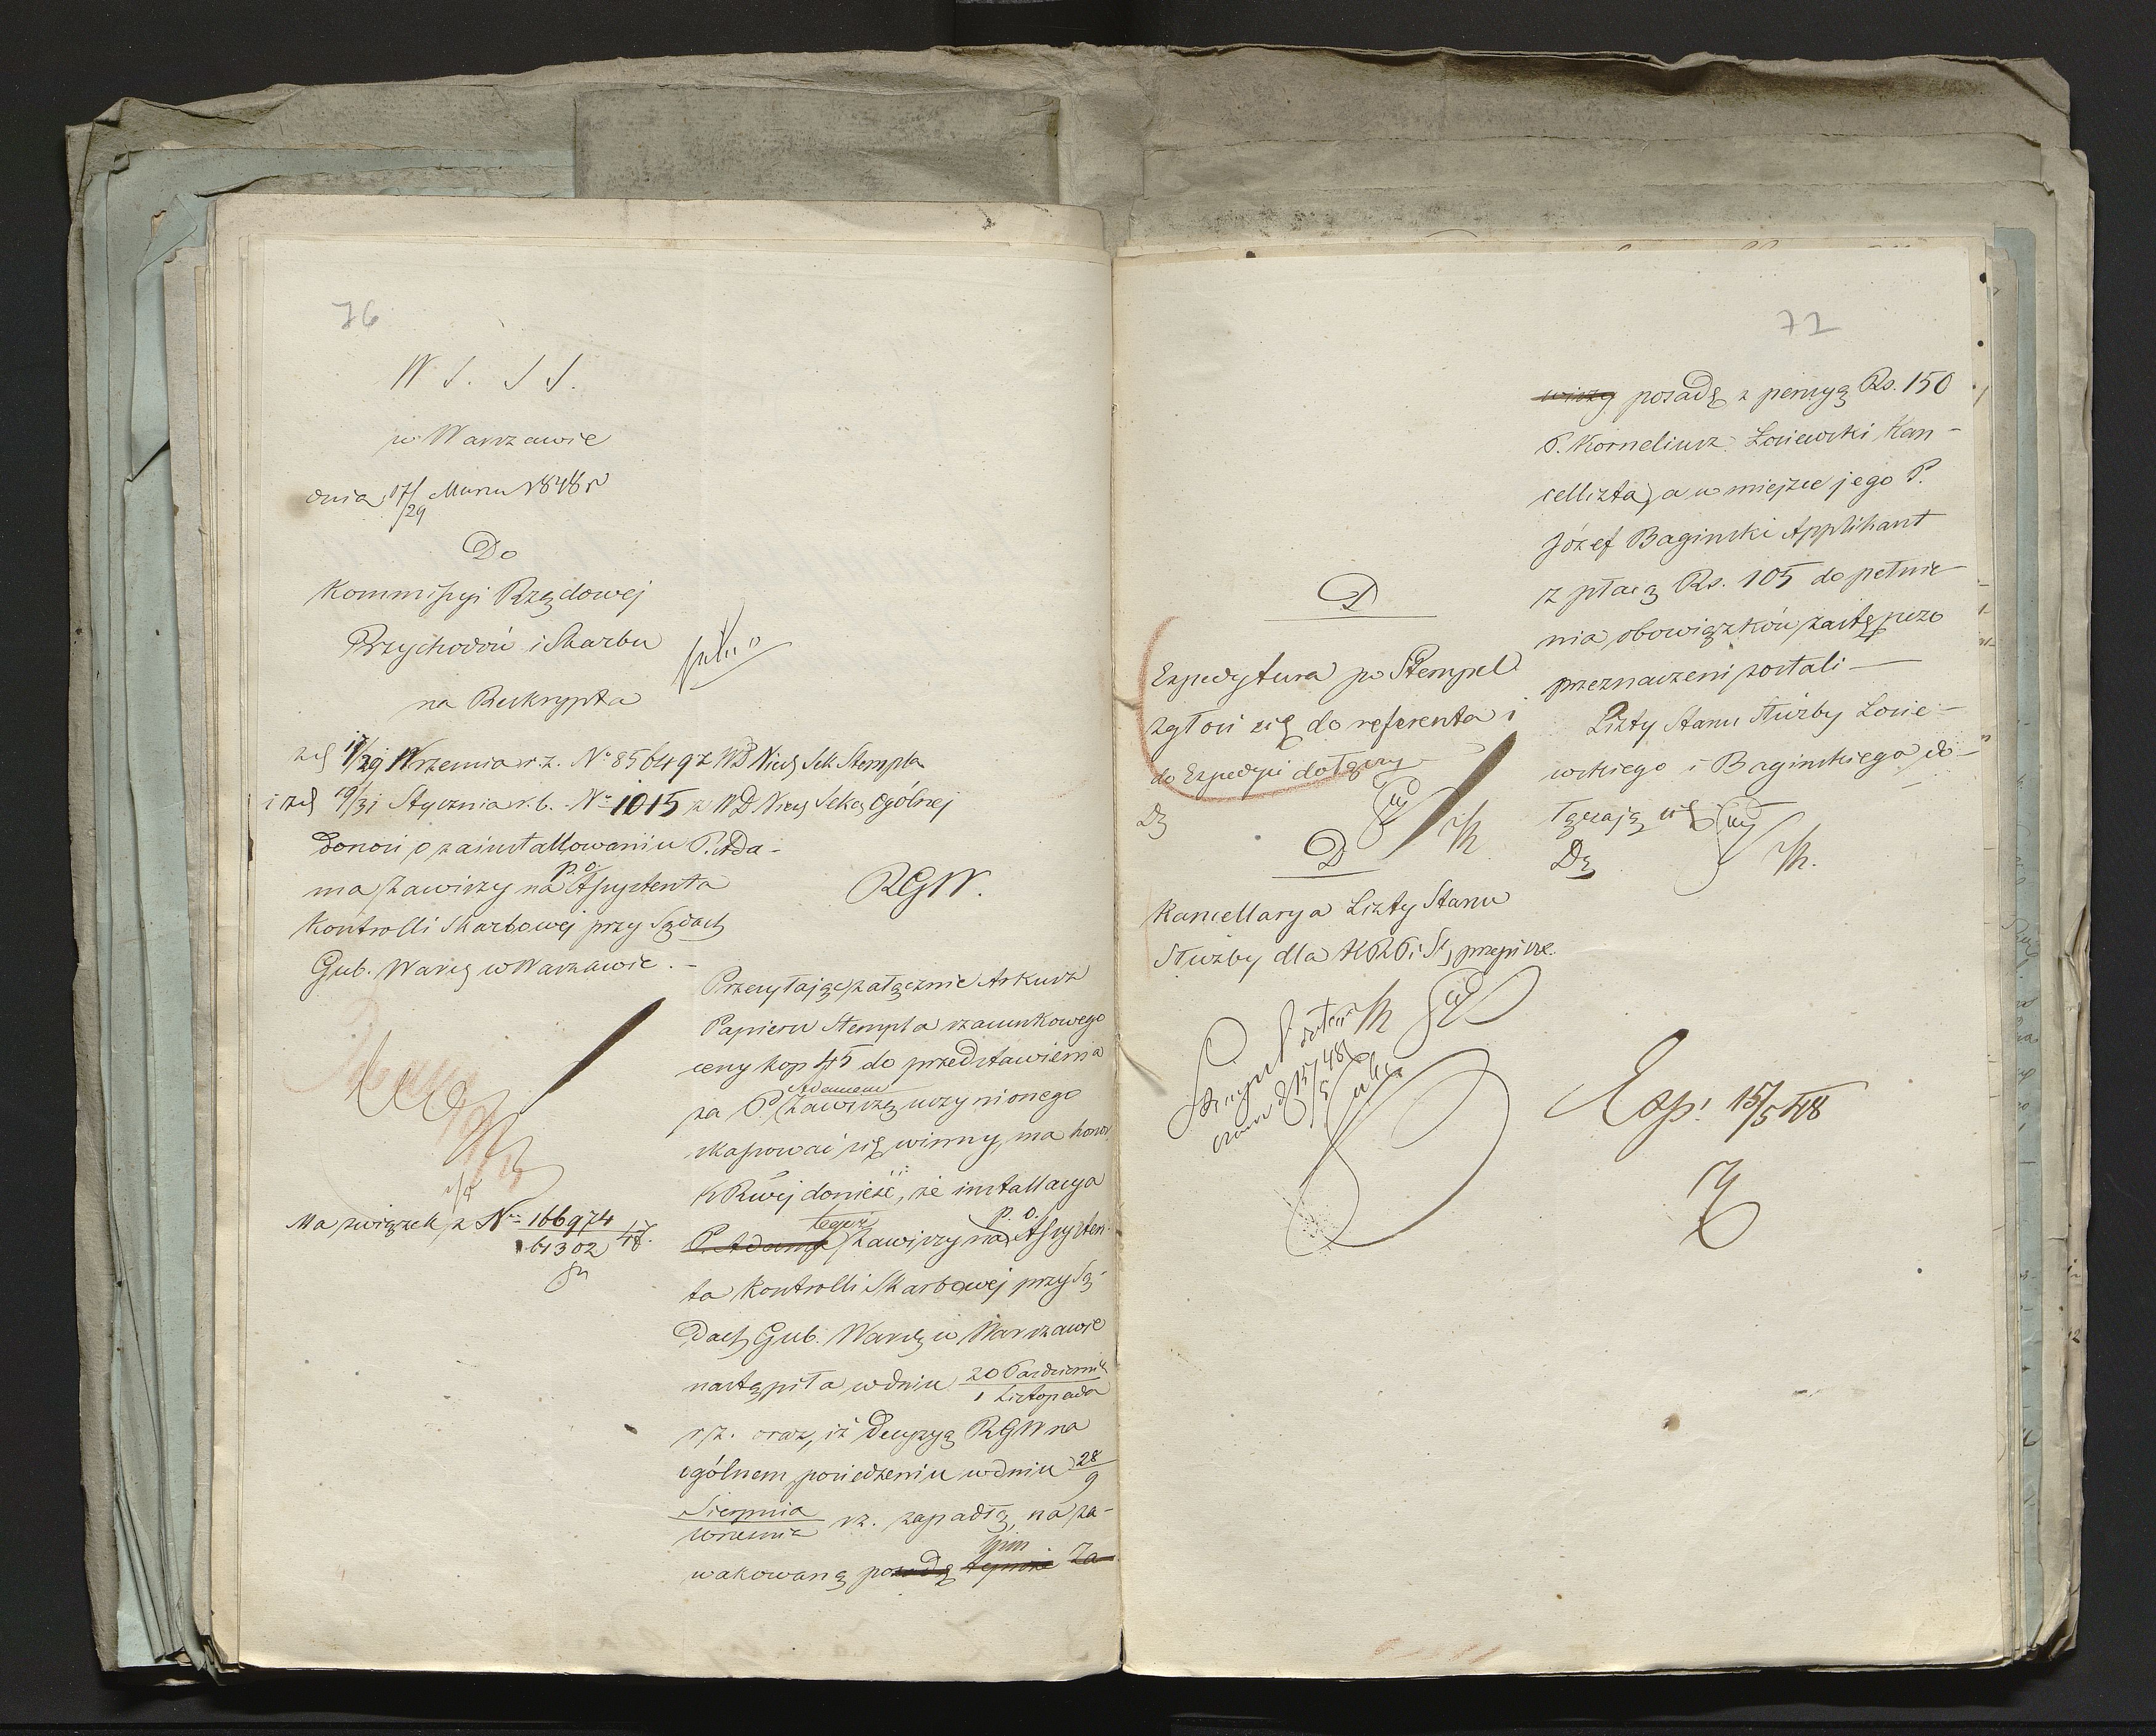 76
W S. S S.
w Warszawie
dnia 17/29 Marca 1848 r
Do
Kommissyi Rzędowej
Przychodów i Skarbu
na Reskrypta
z d 17/29 Września r. z. No 85649 z WD Niest Sek Stempla
i z d 19/31 Stycznia r. b. No 1015 z WD Niest Sekcy Ogólnej
donosi o zainstallowaniu P. Ada-
p. o.
ma Zawiszy na Assystenta
Kontrolli Skarbowej przy Sądach
Gub. Warsz w Warszawie. -
RGW.
Ma związek z No 166974
61302 17/18.
Przesyłając załącznie Arkusz
Papieru Stempla szacunkowego
ceny kop 45 do przedstawienia
Adamem
za P. Zawiszą uczynionego
skasować się winny, ma honor
K R wej donieść, że installacya
tegoż p. o.
P. Adama Zawiszy na Assysten-
ta Kontrolli Skarbowej przy Są-
dach Gub. Warsz w Warszawie
nastąpiła w dniu 20 Październik
1 Listopada
r. z. oraz, iż decyzyą RGW na
ogólnem posiedzeniu w dniu 28
9
Sierpnia
Września r z. zapadłą, na za-
tym
wakowaną posadę tymże Za-
72
wiszy posadę z pensyą Rs. 150
P. Korneliusz Łosiewski Kan-
cellista, a w miejsce jego P.
Józef Baginski Applikant
z płacą Rs. 105 do pełnie-
nia obowiązków zastępczo
przeznaczeni zostali —
Listy Stanu Służby Łosie-
wskiego i Baginskiego do-
łączają się
Dz
D
Expedytura po Stempel
zgłosi się do referenta i
do Expedycyi dołączy
Dz
D
Kancellarya Listy Stanu
Służby dla KRP i S, przepisze.
Stempel
15/5 48
Exp: 15/5 48